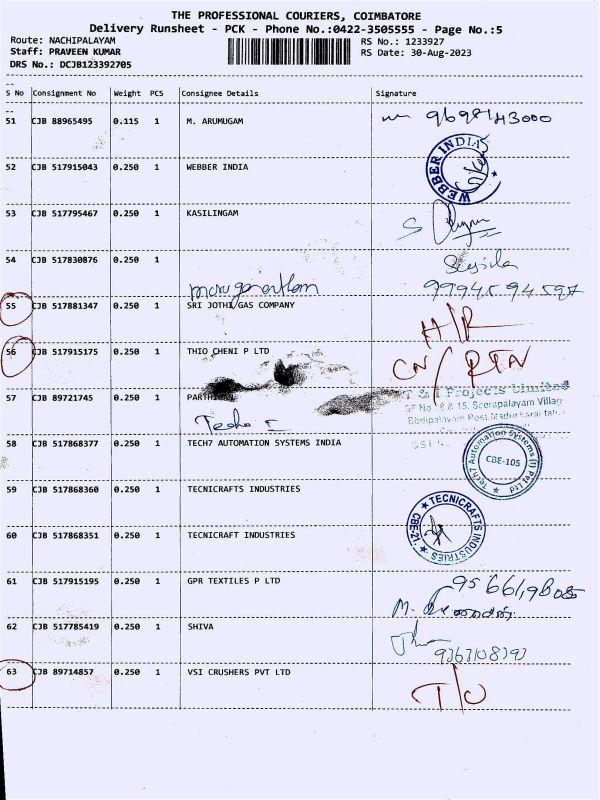 THE PROFESSIONAL COURIERS, COIMBATORE
Delivery Runsheet - PCK - Phone No.:0422-3505555 - Page No.:5
Route: NACHIPALAYAM RS No.: 1233927
Staff: PRAVEEN KUMAR RS Date: 30-Aug-2023
DRS No.: DCJB123392705
S No Consignment No Weight PCS Consignee Details Signature
51 CJB 88965495 0.115 1 M. ARUMUGAM
52 CJB 517915043 0.250 1 WEBBER INDIA WEBBER INDIA
53 CJB 517795467 0.250 1 KASILINGAM
54 CJB 517830876 0.250 1 Susila
muruganantham 9994594597
55 CJB 517881347 0.250 1 SRI JOTHI GAS COMPANY H/R
56 CJB 517915175 0.250 1 THIO CHENI P LTD CN/RTN
57 CJB 89721745 0.250 1 T & I Projects Limited
SF No. 8 & 15, Seerapalayam Villag
Bodipalayam Post, Madukkarai
58 CJB 517868377 0.250 1 TECH7 AUTOMATION SYSTEMS INDIA Tech7 Automation Systems (I) Pvt Ltd CBE-105
59 CJB 517868360 0.250 1 TECNICRAFTS INDUSTRIES
60 CJB 517868351 0.250 1 TECNICRAFT INDUSTRIES TECNICRAFTS INDUSTRIES CBE-21
61 CJB 517915195 0.250 1 GPR TEXTILES P LTD
62 CJB 517785419 0.250 1 SHIVA
63 CJB 89714857 0.250 1 VSI CRUSHERS PVT LTD T/O